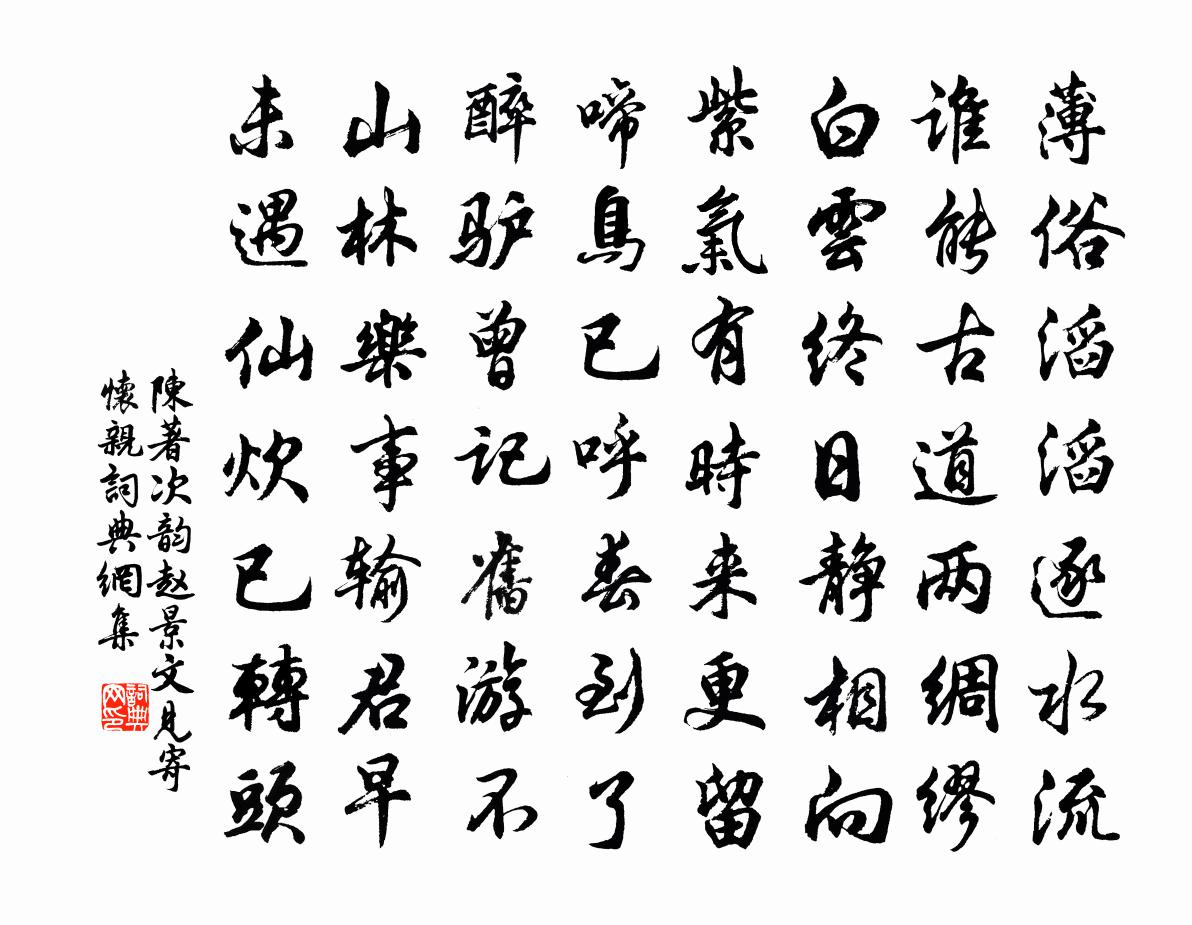 薄俗滔滔逐水流
谁能古道两绸缪
白雲终日静相向
紫氣有時来更留
啼鳥已呼春到了
醉驴曾记舊游不
山林樂事输君早
未遇仙炊已轉頭
陳著次韵赵景文见寄
懷親詞典網集
詞典网印